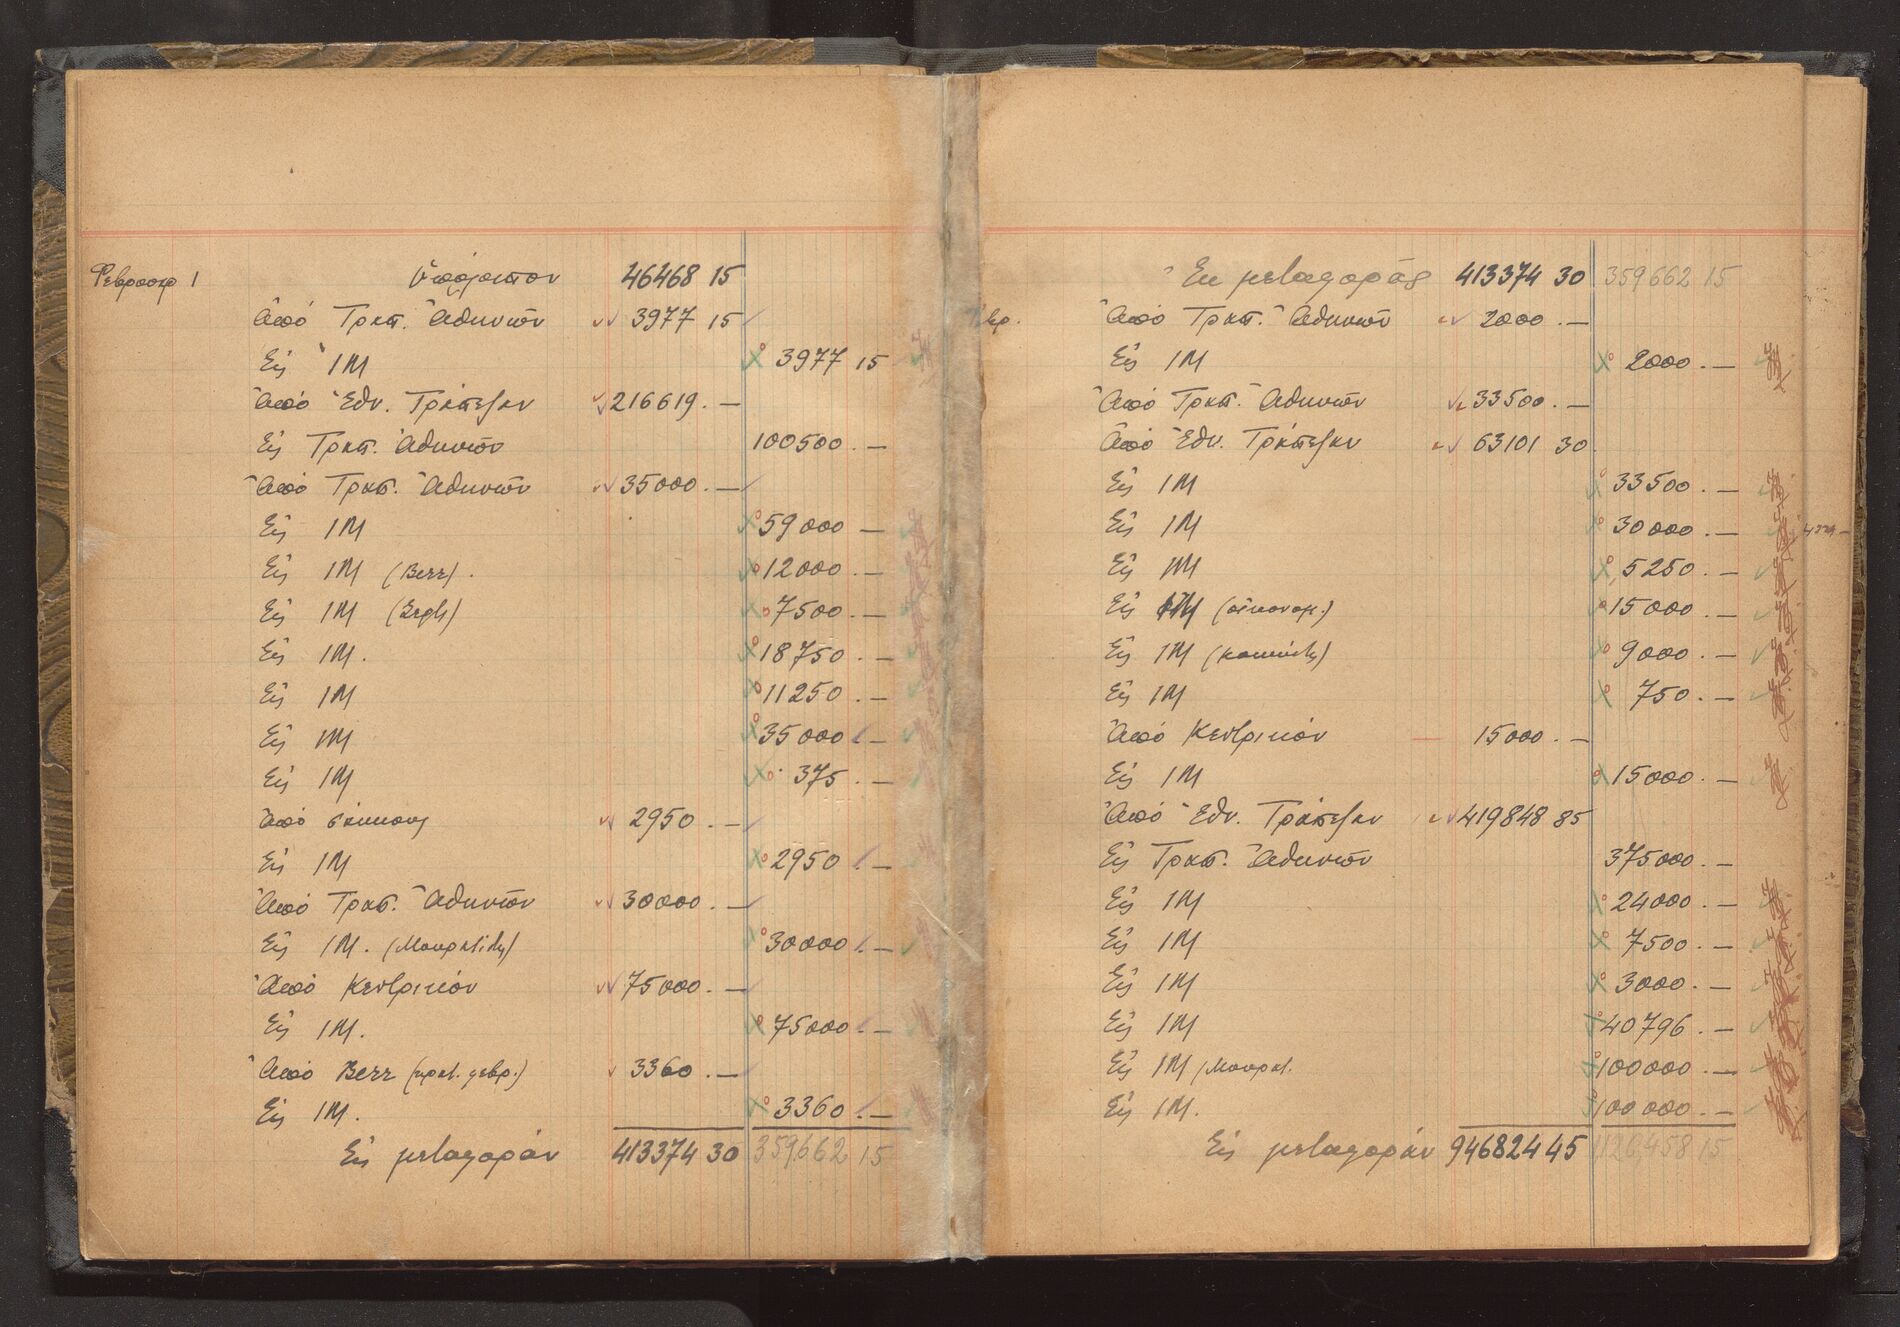 Φεβρουαρ 1 Υπόλοιπον 46468 15
Ἀπό Τραπ. Ἀθηνῶν 3977 15
Εἰς 1Μ 3977 15
Ἀπό Ἐθν. Τράπεζαν 216619.—
Εἰς Τραπ. Ἀθηνῶν 100500.—
Ἀπό Τραπ. Ἀθηνῶν 35000.—
Εἰς 1Μ 59000 —
Εἰς 1Μ (Βενζ). 12000.—
Εἰς 1Μ 7500.—
Εἰς 1Μ. 18750.—
Εἰς 1Μ 11250.—
Εἰς 1Μ 35000.—
Εἰς 1Μ 375.—
Ἀπό σάκκους 2950.—
Εἰς 1Μ 2950.—
Ἀπό Τραπ. Ἀθηνῶν 30000.—
Εἰς 1Μ. 30000.—
Ἀπό Κεντρικόν 75000.—
Εἰς 1Μ. 75000.—
Ἀπό Βενζ 3360.—
Εἰς 1Μ. 3360.—
Εἰς μεταφοράν 413374 30 359662 15
Ἐκ μεταφορᾶς 413374 30 359662 15
Ἀπό Τραπ. Ἀθηνῶν 2000.—
Εἰς 1Μ 2000.—
Ἀπό Τραπ. Ἀθηνῶν 33500.—
Ἀπό Ἐθν. Τράπεζαν 63101 30
Εἰς 1Μ 33500.—
Εἰς 1Μ 30000.—
Εἰς 1Μ 5250.—
Εἰς 1Μ (οἰκονομ.) 15000.—
Εἰς 1Μ 9000.—
Εἰς 1Μ 750.—
Ἀπό Κεντρικόν 15000.—
Εἰς 1Μ 15000.—
Ἀπό Ἐθν. Τράπεζαν 419848 85
Εἰς Τραπ. Ἀθηνῶν 375000.—
Εἰς 1Μ 24000.—
Εἰς 1Μ 7500.—
Εἰς 1Μ 3000.—
Εἰς 1Μ 40796.—
Εἰς 1Μ 100000.—
Εἰς 1Μ. 100000.—
Εἰς μεταφοράν 946824 45 1126458 15